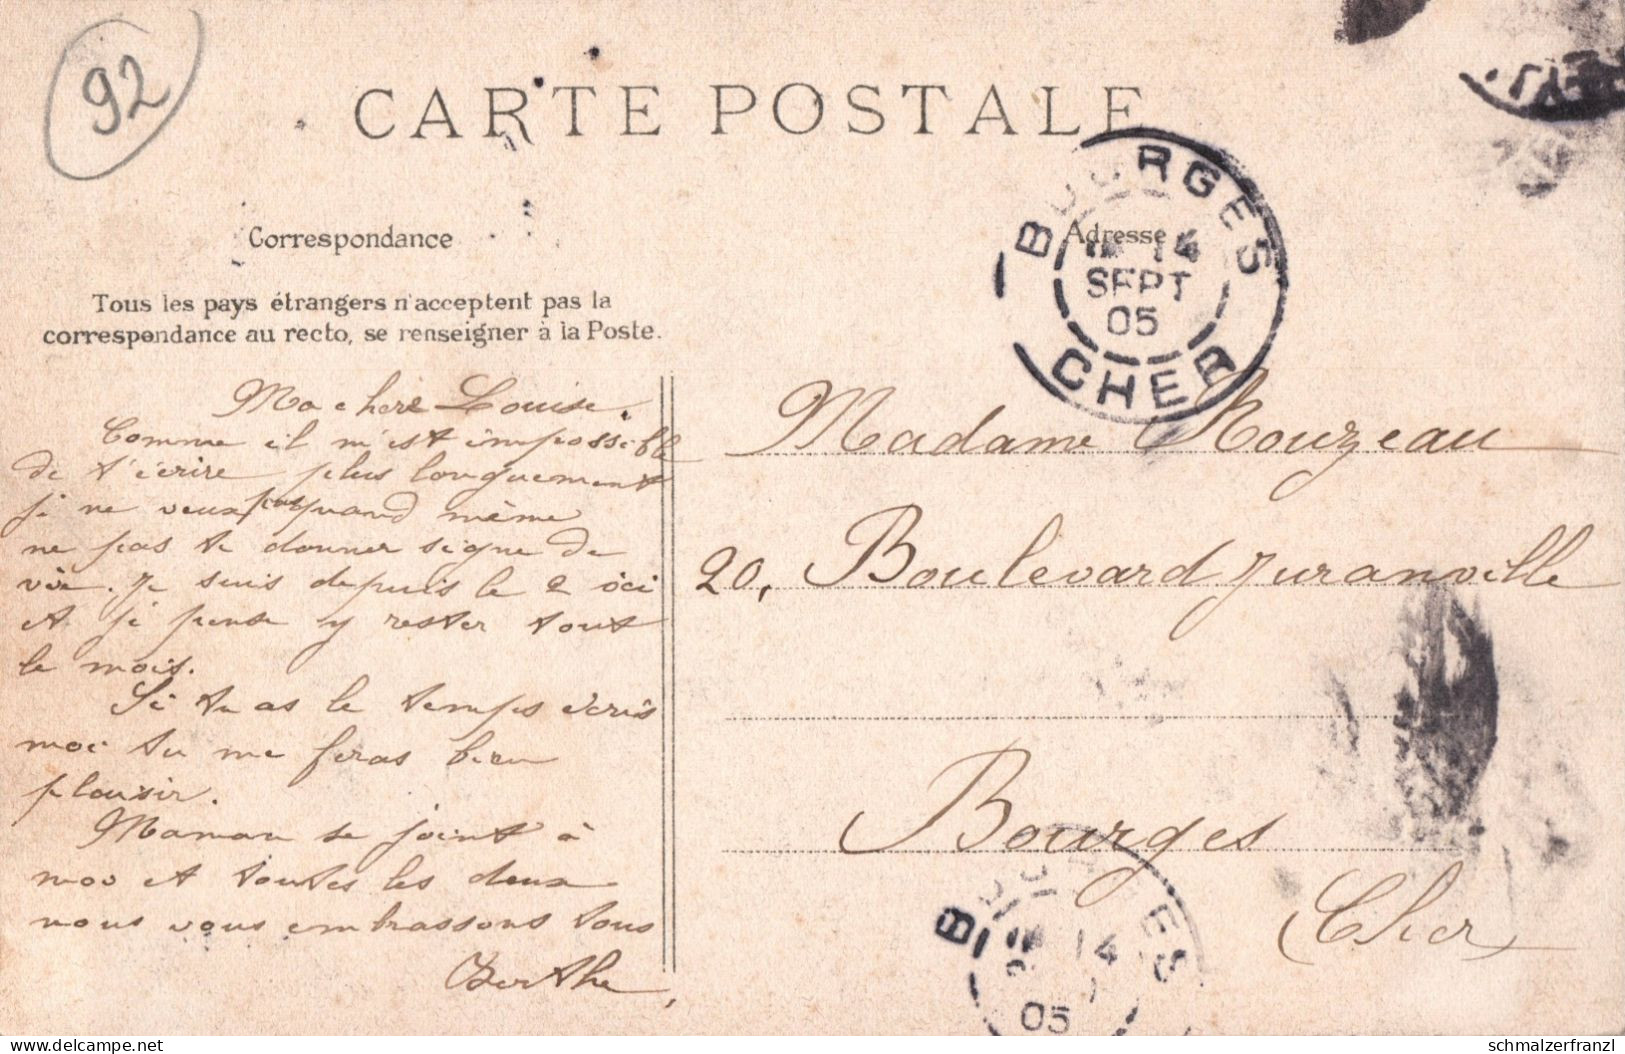 92
CARTE POSTALE
BOURGES
14
SEPT
05
CHER
Correspondance
Adresse
Tous les pays étrangers n'acceptent pas la
correspondance au recto, se renseigner à la Poste.
Ma chere Louise.
Comme il m'est impossible
de t'écrire plus longuement
je ne veux pas quand même
ne pas te donner signe de
vie. Je suis depuis le 2 ici
et je pense y rester tout
le mois.
Si tu as le temps écris
moi tu me feras bien
plaisir.
Maman se joint à
moi et toutes les deux
nous vous embrassons tous
Berthe
Madame Rouzeau
20, Boulevard Juranville
Bourges
Cher
BOURGES
14
05
delcampe.net
schmalzerfranzl